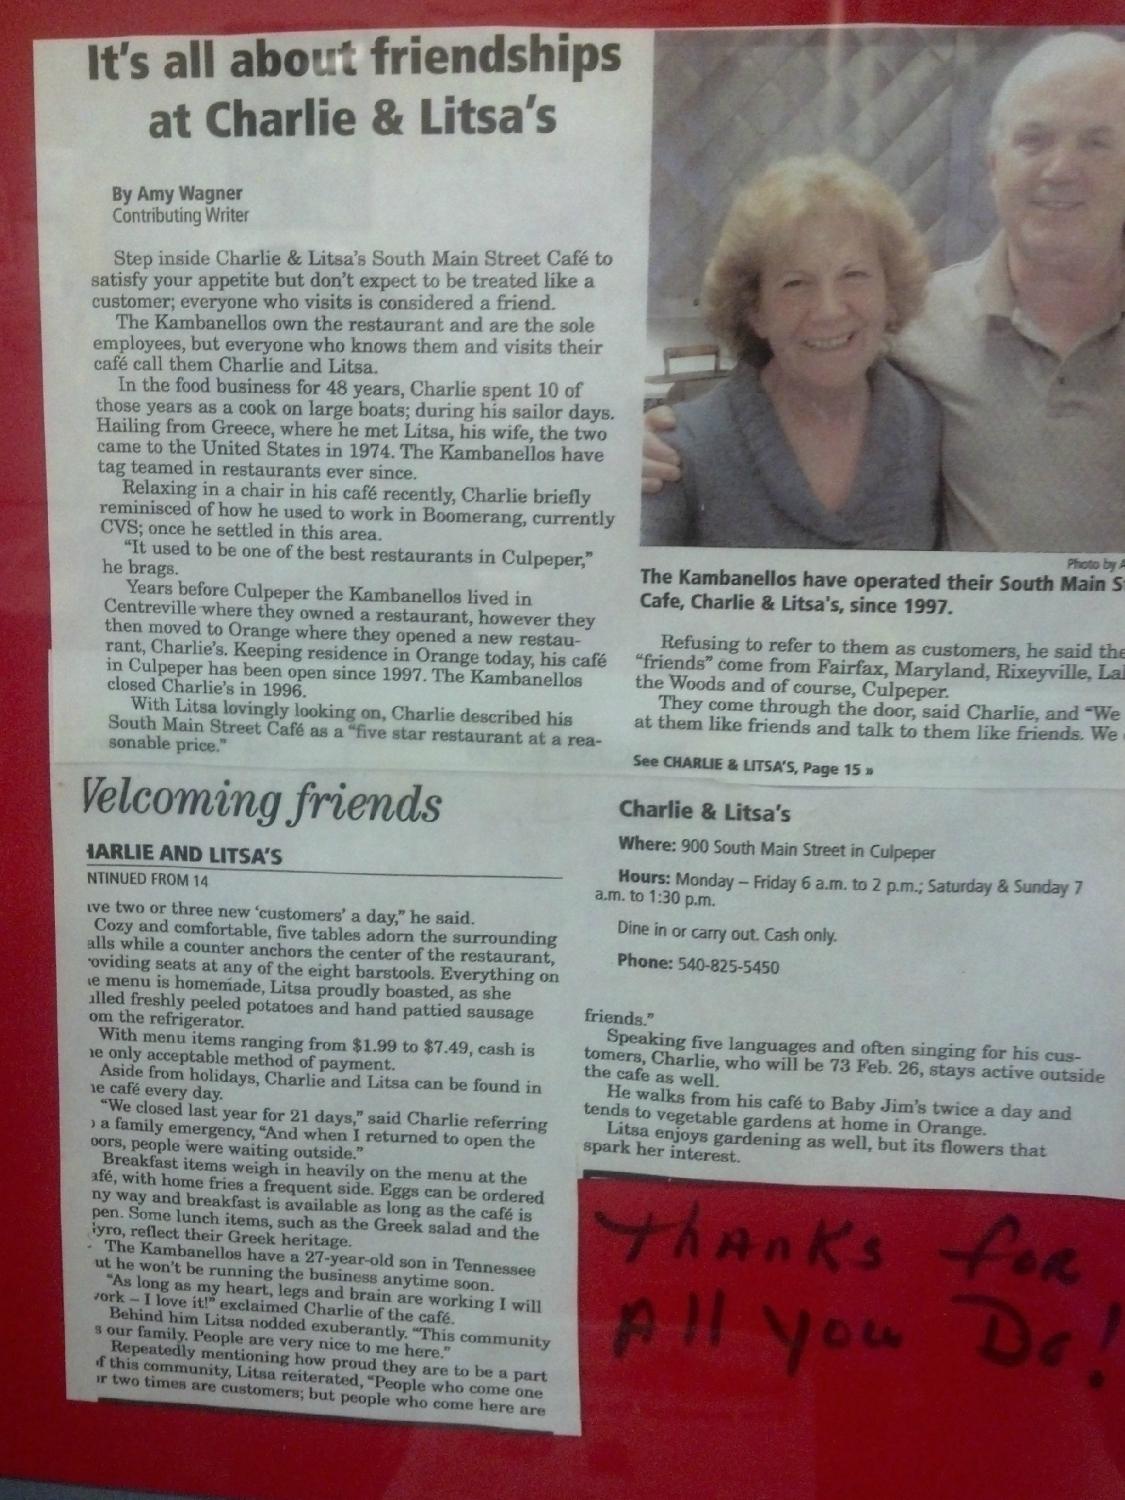 It's all about friendships
at Charlie & Litsa's
By Amy Wagner
Contributing Writer
Step inside Charlie & Litsa's South Main Street Café to
satisfy your appetite but don't expect to be treated like a
customer; everyone who visits is considered a friend.
The Kambanellos own the restaurant and are the sole
employees, but everyone who knows them and visits their
café call them Charlie and Litsa.
In the food business for 48 years, Charlie spent 10 of
those years as a cook on large boats; during his sailor days.
Hailing from Greece, where he met Litsa, his wife, the two
came to the United States in 1974. The Kambanellos have
tag teamed in restaurants ever since.
Relaxing in a chair in his café recently, Charlie briefly
reminisced of how he used to work in Boomerang, currently
CVS; once he settled in this area.
"It used to be one of the best restaurants in Culpeper,"
he brags.
Years before Culpeper the Kambanellos lived in
Centreville where they owned a restaurant, however they
then moved to Orange where they opened a new restau-
rant, Charlie's. Keeping residence in Orange today, his café
in Culpeper has been open since 1997. The Kambanellos
closed Charlie's in 1996.
With Litsa lovingly looking on, Charlie described his
South Main Street Café as a "five star restaurant at a rea-
sonable price."
Photo by A
The Kambanellos have operated their South Main S
Cafe, Charlie & Litsa's, since 1997.
Refusing to refer to them as customers, he said the
"friends" come from Fairfax, Maryland, Rixeyville, La
the Woods and of course, Culpeper.
They come through the door, said Charlie, and "We
at them like friends and talk to them like friends. We
See CHARLIE & LITSA'S, Page 15 »
Velcoming friends
HARLIE AND LITSA'S
NTINUED FROM 14
ve two or three new 'customers' a day," he said.
Cozy and comfortable, five tables adorn the surrounding
alls while a counter anchors the center of the restaurant,
oviding seats at any of the eight barstools. Everything on
e menu is homemade, Litsa proudly boasted, as she
lled freshly peeled potatoes and hand pattied sausage
om the refrigerator.
With menu items ranging from $1.99 to $7.49, cash is
e only acceptable method of payment.
Aside from holidays, Charlie and Litsa can be found in
e café every day.
"We closed last year for 21 days," said Charlie referring
a family emergency, "And when I returned to open the
oors, people were waiting outside."
Breakfast items weigh in heavily on the menu at the
afé, with home fries a frequent side. Eggs can be ordered
ny way and breakfast is available as long as the café is
pen. Some lunch items, such as the Greek salad and the
yro, reflect their Greek heritage.
The Kambanellos have a 27-year-old son in Tennessee
ut he won't be running the business anytime soon.
"As long as my heart, legs and brain are working I will
ork – I love it!" exclaimed Charlie of the café.
Behind him Litsa nodded exuberantly. "This community
s our family. People are very nice to me here."
Repeatedly mentioning how proud they are to be a part
f this community, Litsa reiterated, "People who come one
r two times are customers; but people who come here are
Charlie & Litsa's
Where: 900 South Main Street in Culpeper
Hours: Monday – Friday 6 a.m. to 2 p.m.; Saturday & Sunday 7
a.m. to 1:30 p.m.
Dine in or carry out. Cash only.
Phone: 540-825-5450
friends."
Speaking five languages and often singing for his cus-
tomers, Charlie, who will be 73 Feb. 26, stays active outside
the cafe as well.
He walks from his café to Baby Jim's twice a day and
tends to vegetable gardens at home in Orange.
Litsa enjoys gardening as well, but its flowers that
spark her interest.
Thanks for
All you Do!